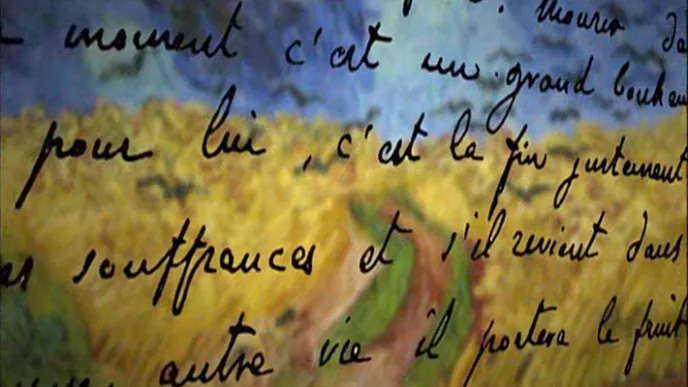 Mourir da
moment c'est un grand bonheu
pour lui, c'est la fin justement
es souffrances et s'il revient dans
autre vie il portera le fruit